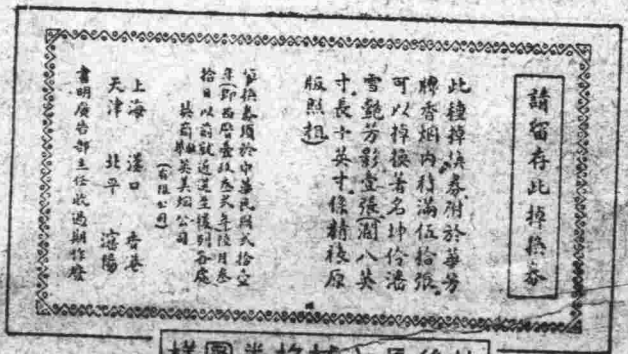 請留存此掉換券
此種掉換券附於華芳
牌香烟內積滿伍拾張
可以掉換著名坤伶潘
雪艷芳影壹張(闊八英
寸長十英寸係精緻原
版照相)
掉換券須於中華民國弍拾壹
年(即西曆壹玖叁弍年)陸月叁
拾日以前就近送至後列各處
英美烟公司
(有限公司)
上海 漢口 香港
天津 北平 瀋陽
書明廣告部主任收過期作廢